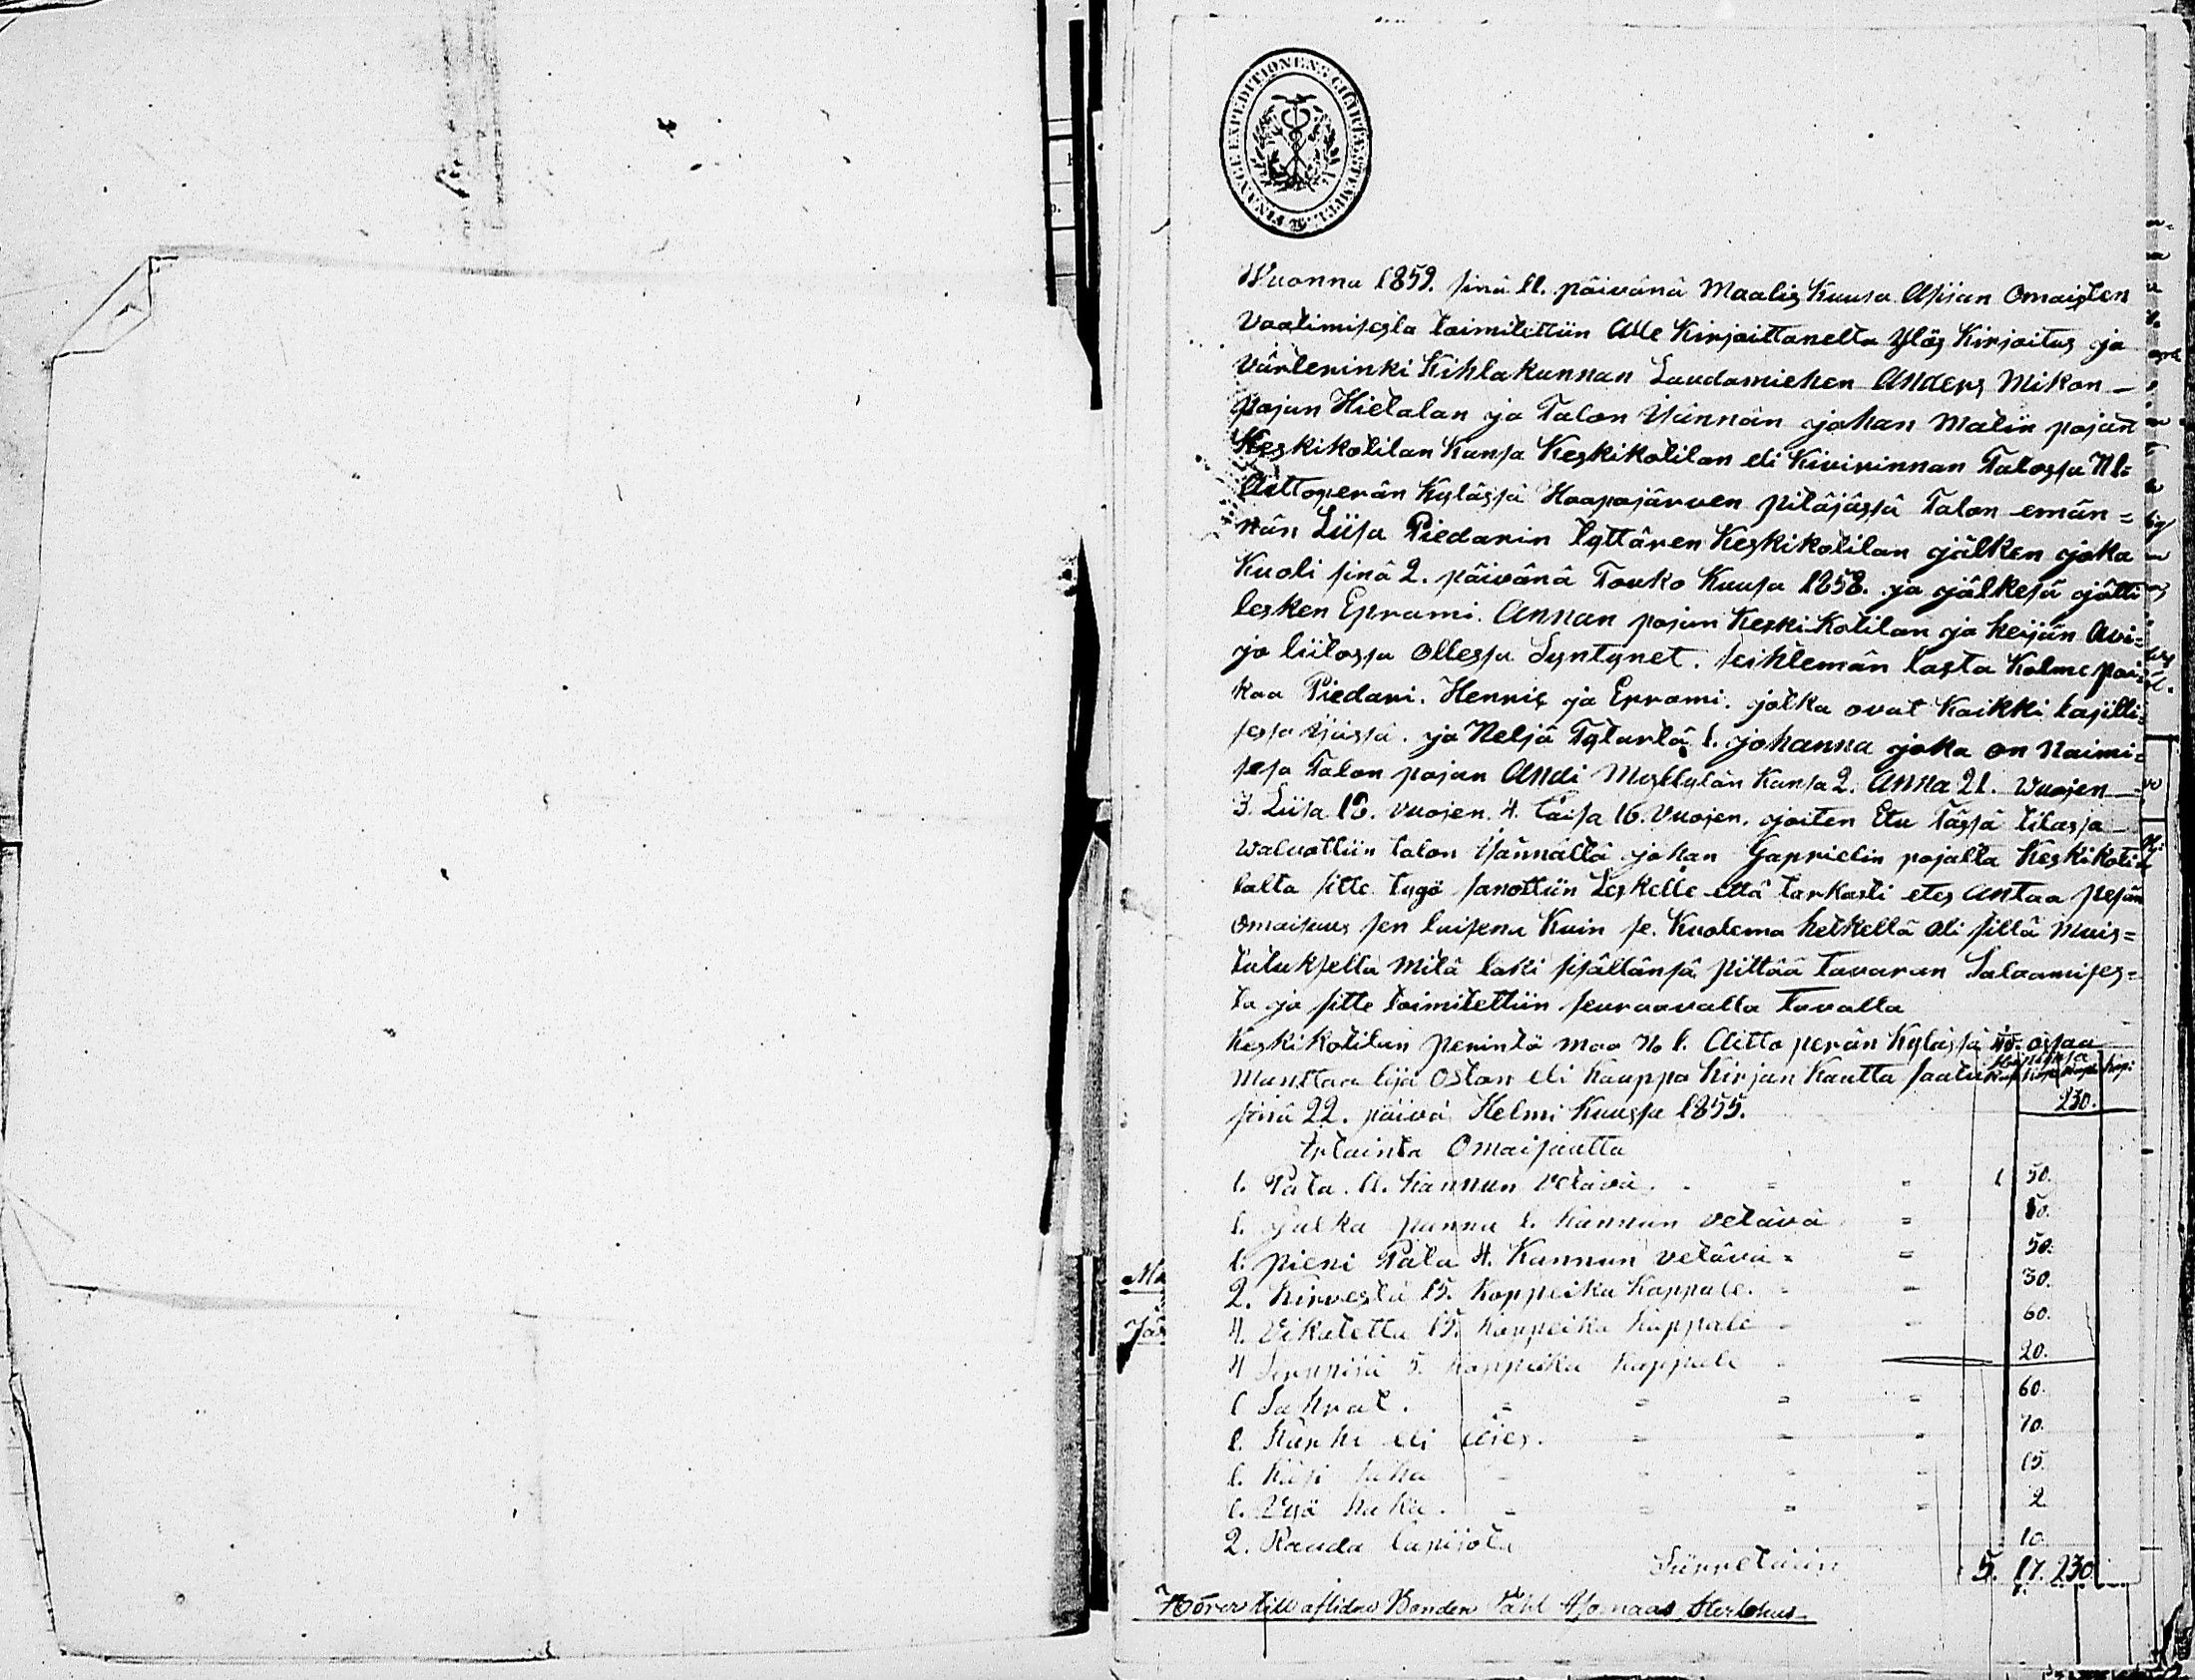 FINANCE EXPEDITIONENS CHARTÆ STEMPEL
Wuonna 1859. sinä 11. päivänä Maalis Kuusa Asijan Omaisten
Vaatimisesta toimitettiin Alle Kirjoittanelta Ylös Kirjoitus ja
Värterinki Kihlakunnan Laudamiehen Anders Mikon
pojan Hietalan ja Talon Isännän johan Matiin pojan
Keskikotilan Kansa Keskikotilan eli Kivirinnan Talossa N 1=
Aittoperän Kylässä Haapajärven pitäjässä Talon emän=
nän Liisa Piedarin tyttären Keskikotilan jälken joka
Kuoli sinä 2. päivänä Touko Kuusa 1858. ja jälkesä jätti
lesken Eprami. Annan pojan Keskikotilan ja heijän Avi=
jo liitossa Ollessa Syntynet. seihtemän lasta Kolme poi=
kaa Piedari. Henric ja Eprami. jotka ovat Kaikki täsilli=
sessa ijässä. ja Neljä Tytärtä 1. johanna joka on Naimi=
sesa Talon pojan Andi Mustylän Kansa 2. Anna 21. Wuojen
3. Liisa 18. vuojen. 4. Caisa 16. Vuojen. joiten Etu Tässä tilassa
walvottiin talon Isännältä johan Gaprielin pojalta Keskikoti=
lalta sitte tygö sanottiin Leskelle että tarkasti etes Antaa pesän
Omaisuus sen laisena Kuin se. Kuolema hetkellä oli sillä Muis=
tutuksella Mitä laki sisällänsä pittää tavaran Salaamises=
ta ja sitte toimitettiin seuraavalla tavalla
Keskikotilan perintö maa No 1. Aitto perän Kylässä osaa
Manttaalija Oston eli Kauppa Kirjan Kautta saatu
sinä 22. päivä Helmi Kuussa 1855. 230.
Irtainta Omaisuutta
1. Pata. 11. Kannun Vetävä. = = 1 50.
1. Jalka panna 1. Kannun vetävä =
1. pieni Pata 4. Kannun vetävä = = 50.
2. Kirvestä 15. Koppeika Kappale. = = 30.
4. Vikatetta 15. Koppeika Kappale = = 60.
4 Sirppiä 5. Koppeika Kappale = 20.
1 Sahrat. = = = = 60.
1. Känki eli Aies. = = = 70.
1. Käsi saha = = = = 15.
1. Vyö haka. = = = = 2
2. Rauda lapijota 10.
Siirretään 5. 17. 230.
Hörer till aflidne Bonden